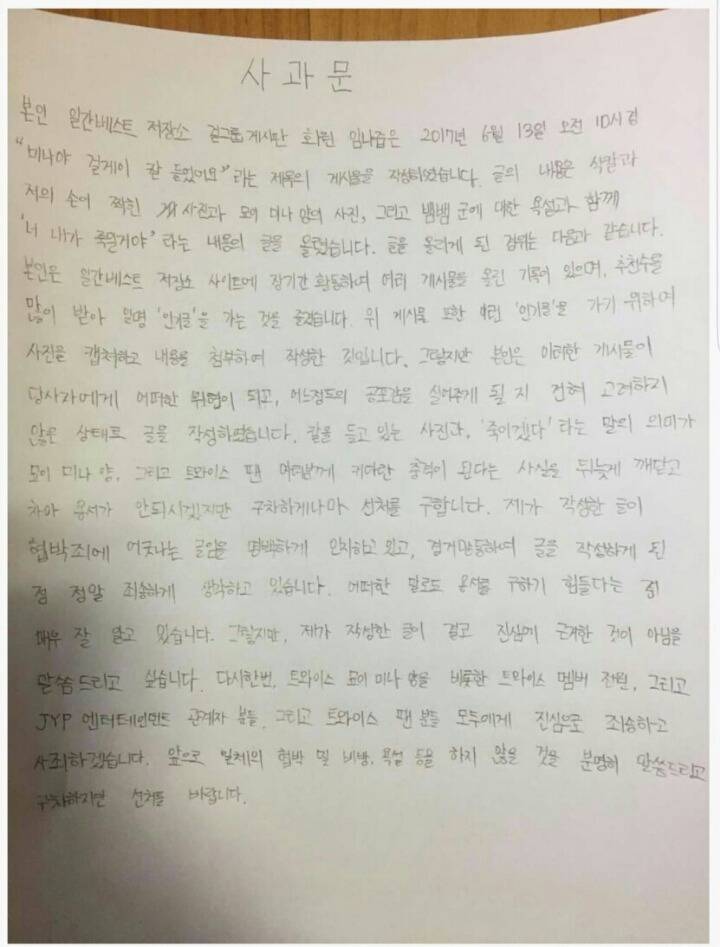 사과문
본인 일간베스트 저장소 걸그룹게시판 회원 임나즙은 2017년 6월 13일 오전 10시경
"미나야 걸게이 칼 들었어요" 라는 제목의 게시물을 작성하였습니다. 글의 내용은 식칼과
저의 손이 찍힌 사진과 묘이 미나 양의 사진, 그리고 뱀뱀 군에 대한 욕설과 함께
'너 내가 죽일거야' 라는 내용의 글을 올렸습니다. 글을 올리게 된 경위는 다음과 같습니다.
본인은 일간베스트 저장소 사이트에 장기간 활동하여 여러 게시물을 올린 기록이 있으며, 추천수를
많이 받아 일명 '인기글'을 가는 것을 즐겼습니다. 위 게시물 또한 '인기글'을 가기 위하여
사진을 캡쳐하고 내용을 첨부하여 작성한 것입니다. 그렇지만 본인은 이러한 게시물이
당사자에게 어떠한 위협이 되고, 어느정도의 공포감을 실어주게 될 지 전혀 고려하지
않은 상태로 글을 작성하였습니다. 칼을 들고 있는 사진과, '죽이겠다' 라는 말의 의미가
묘이 미나 양, 그리고 트와이스 팬 여러분께 커다란 충격이 된다는 사실을 뒤늦게 깨닫고
차마 용서가 안되시겠지만 구차하게나마 선처를 구합니다. 제가 작성한 글이
협박죄에 어긋나는 글임을 명백하게 인지하고 있고, 경거망동하여 글을 작성하게 된
점 정말 죄송하게 생각하고 있습니다. 어떠한 말로도 용서를 구하기 힘들다는 점
매우 잘 알고 있습니다. 그렇지만, 제가 작성한 글이 결코 진심에 근거한 것이 아님을
말씀드리고 싶습니다. 다시한번, 트와이스 묘이 미나 양을 비롯한 트와이스 멤버 전원, 그리고
JYP 엔터테인먼트 관계자 분들, 그리고 트와이스 팬 분들 모두에게 진심으로 죄송하고
사죄하겠습니다. 앞으로 일체의 협박 및 비방, 욕설 등을 하지 않을 것을 분명히 말씀드리고
구차하지만 선처를 바랍니다.